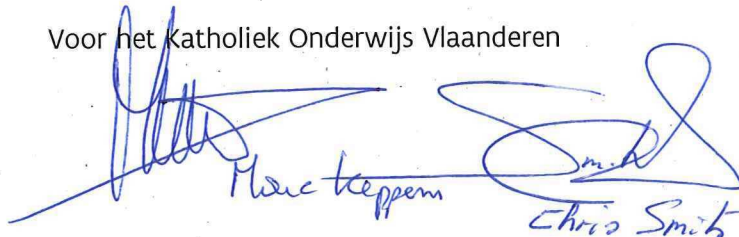 Voor het Katholiek Onderwijs Vlaanderen
Marc Keppens
Smit
Chris Smits